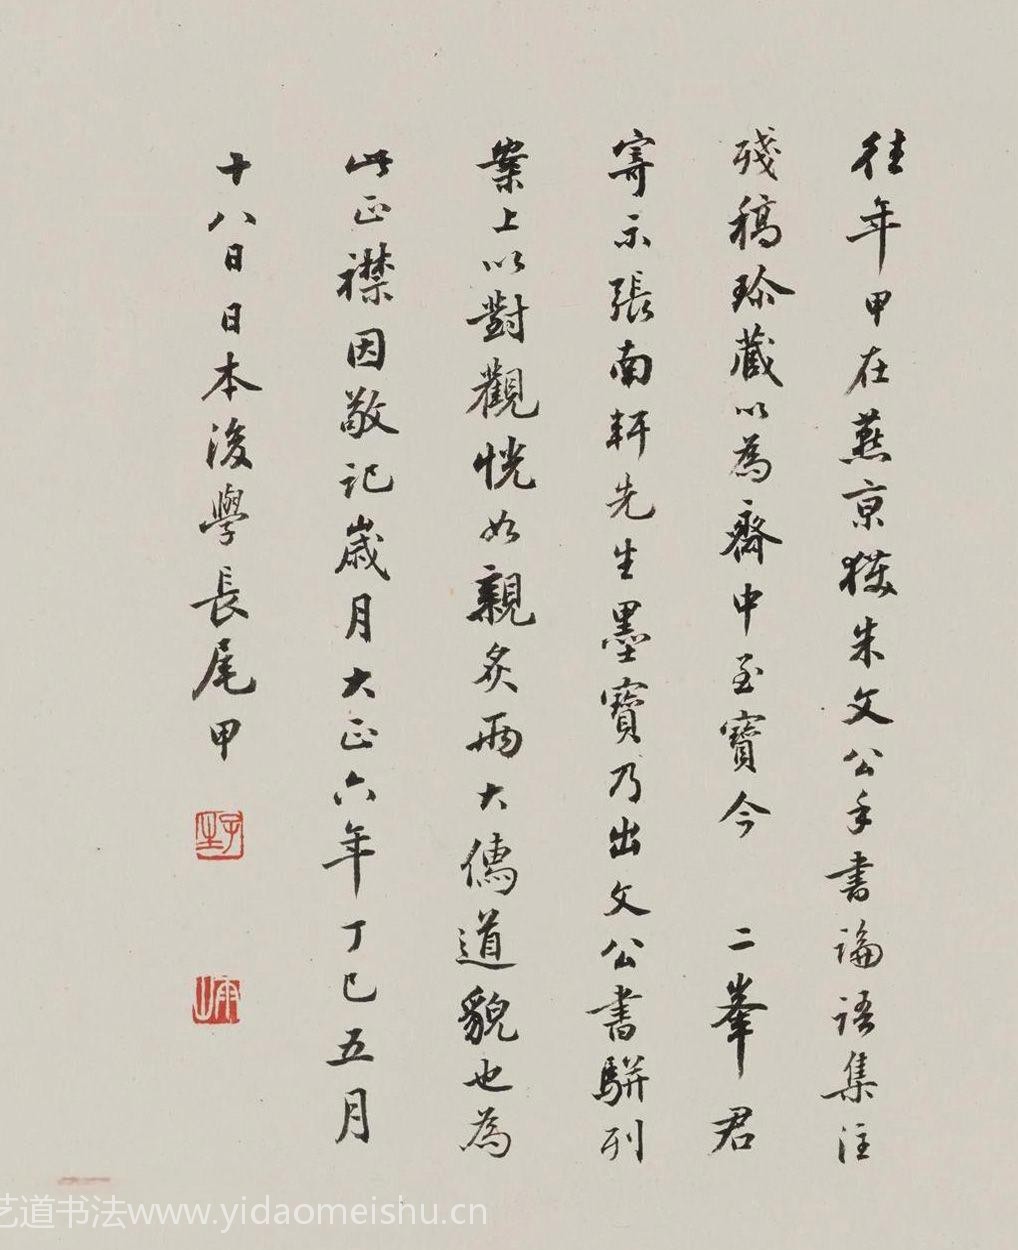 往年甲在燕京獲朱文公手書論語集注
殘稿珍藏以為齋中至寶今 二峯君
寄示張南軒先生墨寶乃出文公書駢列
案上以對觀恍如親炙兩大儒道貌也為
此正襟因敬記歲月大正六年丁巳五月
十八日日本後學長尾甲
艺道书法www.yidaomeishu.cn